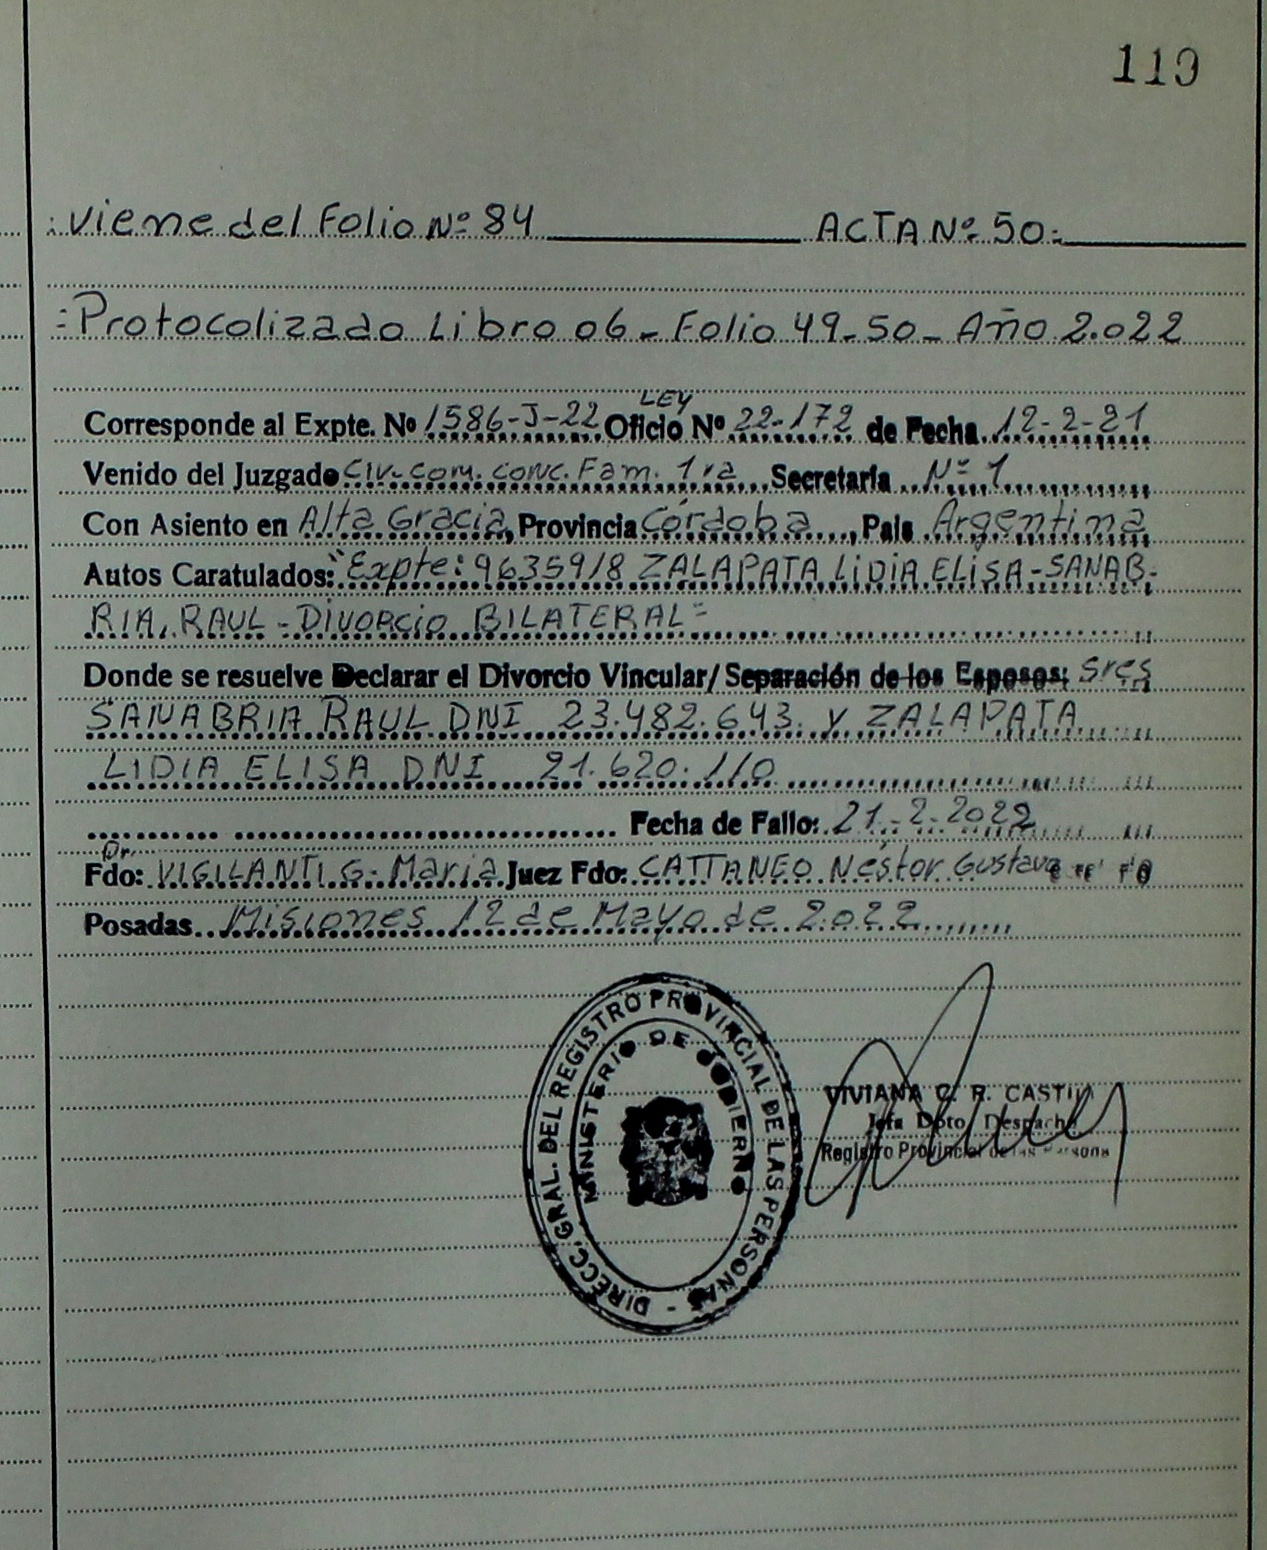 119
Viene del Folio Nº 84 ACTA Nº 50
Protocolizado Libro 06 - Folio 49-50 - Año 2.022
LEY
Corresponde al Expte. Nº 1586-J-22 Oficio Nº 22-172 de Fecha 12-2-21
Venido del Juzgado Civ. Com. Conc. Fam. 1ra Secretaría Nº 1
Con Asiento en Alta Gracia, Provincia Córdoba, País Argentina
Autos Caratulados: "Expte: 9635918 ZALAPATA LIDIA ELISA - SANAB-
RIA, RAUL - Divorcio BILATERAL"
Donde se resuelve Declarar el Divorcio Vincular/Separación de los Esposos: Sres
SANABRIA RAUL DNI 23.482.643. y ZALAPATA
LIDIA ELISA DNI 21.620.110
Fecha de Fallo: 21-2-2022
Dr.
Fdo: VIGILANTI G. María Juez Fdo: CATTANEO Néstor Gustavo
Posadas Misiones 12 de Mayo de 2.022
DIRECC. GRAL. DEL REGISTRO PROVINCIAL DE LAS PERSONAS -
MINISTERIO DE GOBIERNO
VIVIANA C. R.
Jefa Dpto. Despacho
Registro Provincial de las Persona